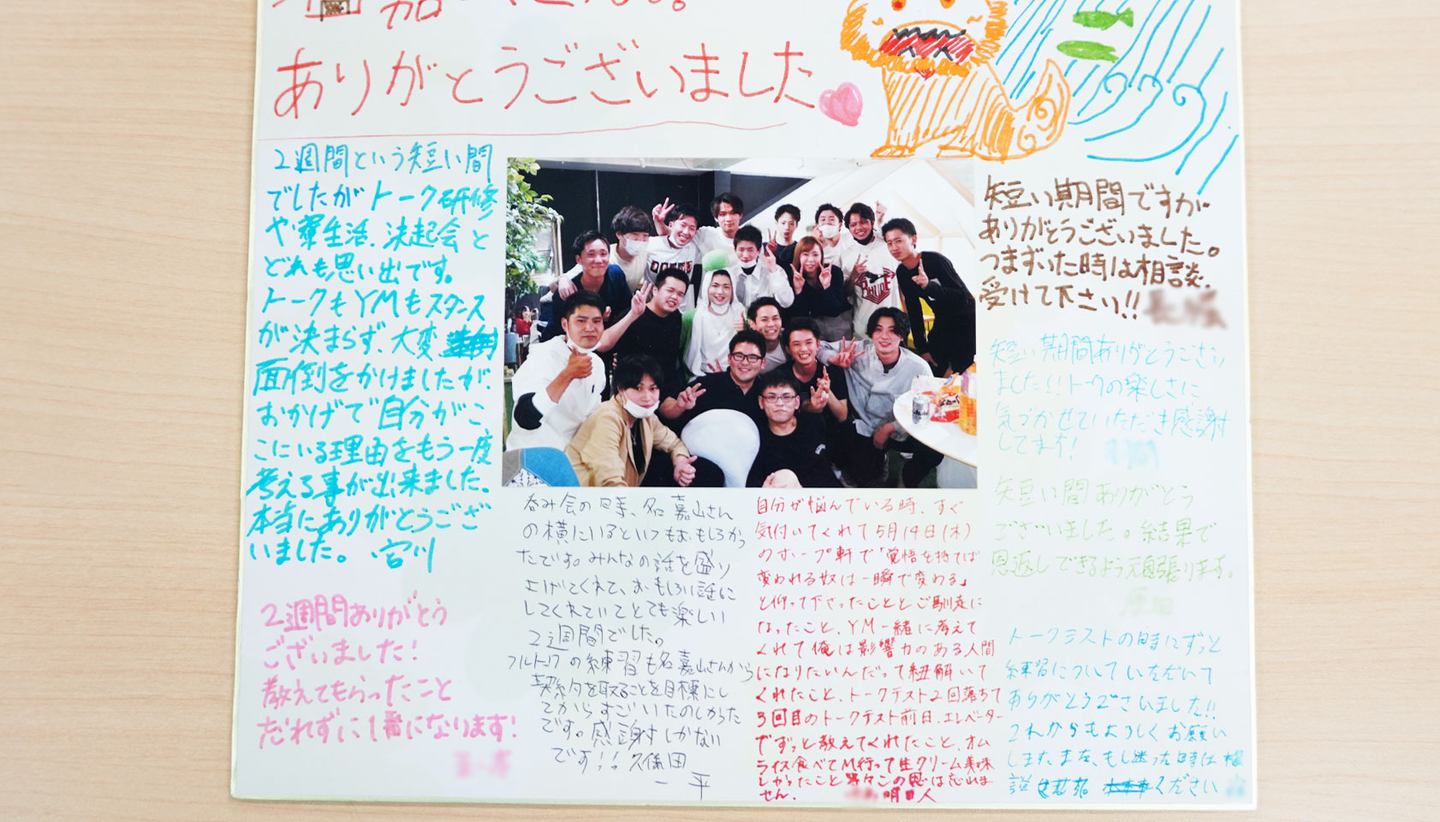 名嘉山さん。
ありがとうございました
2週間という短い間
でしたがトーク研修
や寮生活、決起会と
どれも思い出です。
トークもYMもスタンス
が決まらず、大変
面倒をかけましたが、
おかげで自分がこ
こにいる理由をもう一度
考える事が出来ました。
本当にありがとうござ
いました。宮川
2週間ありがとう
ございました!
教えてもらったこと
忘れずに1番になります!
呑み会の時、名嘉山さん
の横にいるといつもおもしろか
ったです。みんなの話を盛り
上げてくれて、おもしろい話に
してくれていてとても楽しい
2週間でした。
フルトークの練習も名嘉山さんから
契約を取ることを目標にし
てからすごいたのしかった
です。感謝しかない
です!! 久保田
一平
自分が悩んでいる時、すぐ
気付いてくれて5月14日(木)
のスープ軒で「覚悟を持てば
変われる奴は一瞬で変わる」
と仰って下さったこととご馳走に
なったこと、YM一緒に考えて
くれて俺は影響力のある人間
になりたいんだって紐解いて
くれたこと、トークテスト2回落ちて
3回目のトークテスト前日、エレベーター
でずっと教えてくれたこと、オム
ライス食べてM行って生クリーム美味
しかったこと等々この恩は忘れま
せん。 明日人
短い期間ですが
ありがとうございました。
つまずいた時は相談、
受けて下さい!!
短い期間ありがとうござい
ました!!トークの楽しさに
気づかせていただき感謝
してます!
短い間ありがとう
ございました。結果で
恩返しできるよう頑張ります。
トークテストの時にずっと
練習についていただいて
ありがとうございました!!
これからもよろしくお願い
します。また、もし困った時は相
談 ください